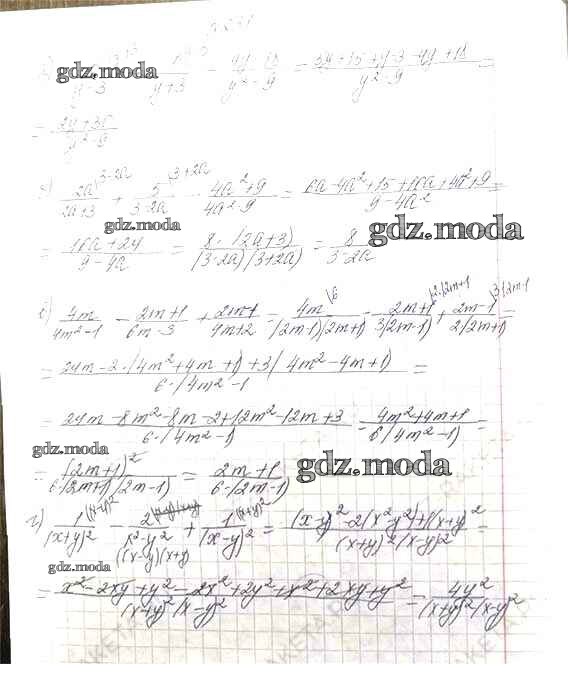 gdz.moda
y-3 y+3 - y²-9 = y²-9 =
= 2y+3 / y²-9
2a\3-2a / 2a+3 + 5\3+2a / 3-2a - 4a²+9 / 4a²-9 = 6a-4a²+15+10a+4a²+9 / 9-4a² =
gdz.moda
= 16a+24 / 9-4a = 8·(2a+3) / (3-2a)(3+2a) = 8 / 3-2a
gdz.moda
в) 4m / 4m²-1 - 2m+1 / 6m-3 + 2m-1 / 4m+2 = 4m\6 / (2m-1)(2m+1) - 2m+1\2·(2m+1 / 3(2m-1) + 2m-1\3(2m-1 / 2(2m+1) =
= 24m-2·(4m²+4m+1)+3(4m²-4m+1) / 6·(4m²-1 =
= 24m-8m²-8m-2+12m²-12m+3 / 6·(4m²-1) = 4m²+4m+1 / 6(4m²-1) =
gdz.moda
= (2m+1)² / 6(2m+1)(2m-1) = 2m+1 / 6·(2m-1)
gdz.moda
г) 1\(x-y)² / (x+y)² - 2 / x²-y² + 1\(x+y)² / (x-y)² = (x-y)²-2(x²-y²)+(x+y)² / (x+y)²(x-y)² =
(x-y)(x+y)
gdz.moda
= x²-2xy+y²-2x²+2y²+x²+2xy+y² / (x+y)²(x-y)² = 4y² / (x+y)²(x-y)²